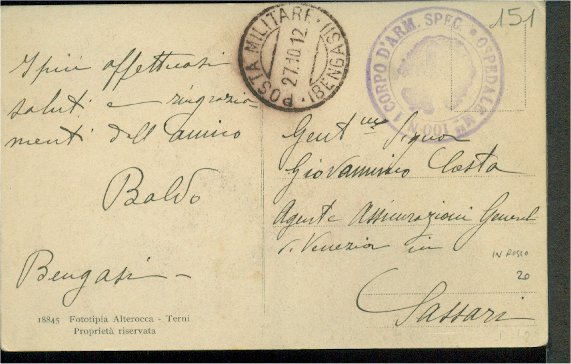 I più affettuosi
saluti e ringrazia
menti dell'amico
Baldo
Bengasi -
18845 Fototipia Alterocca - Terni
Proprietà riservata
POSTA MILITARE (BENGASI)
27.10.12
I CORPO D'ARM. SPEC. OSPEDALE
151
Gent mo Signor
Giovannino Costa
Agente Assicurazioni Generali
Venezia in
Sassari
20